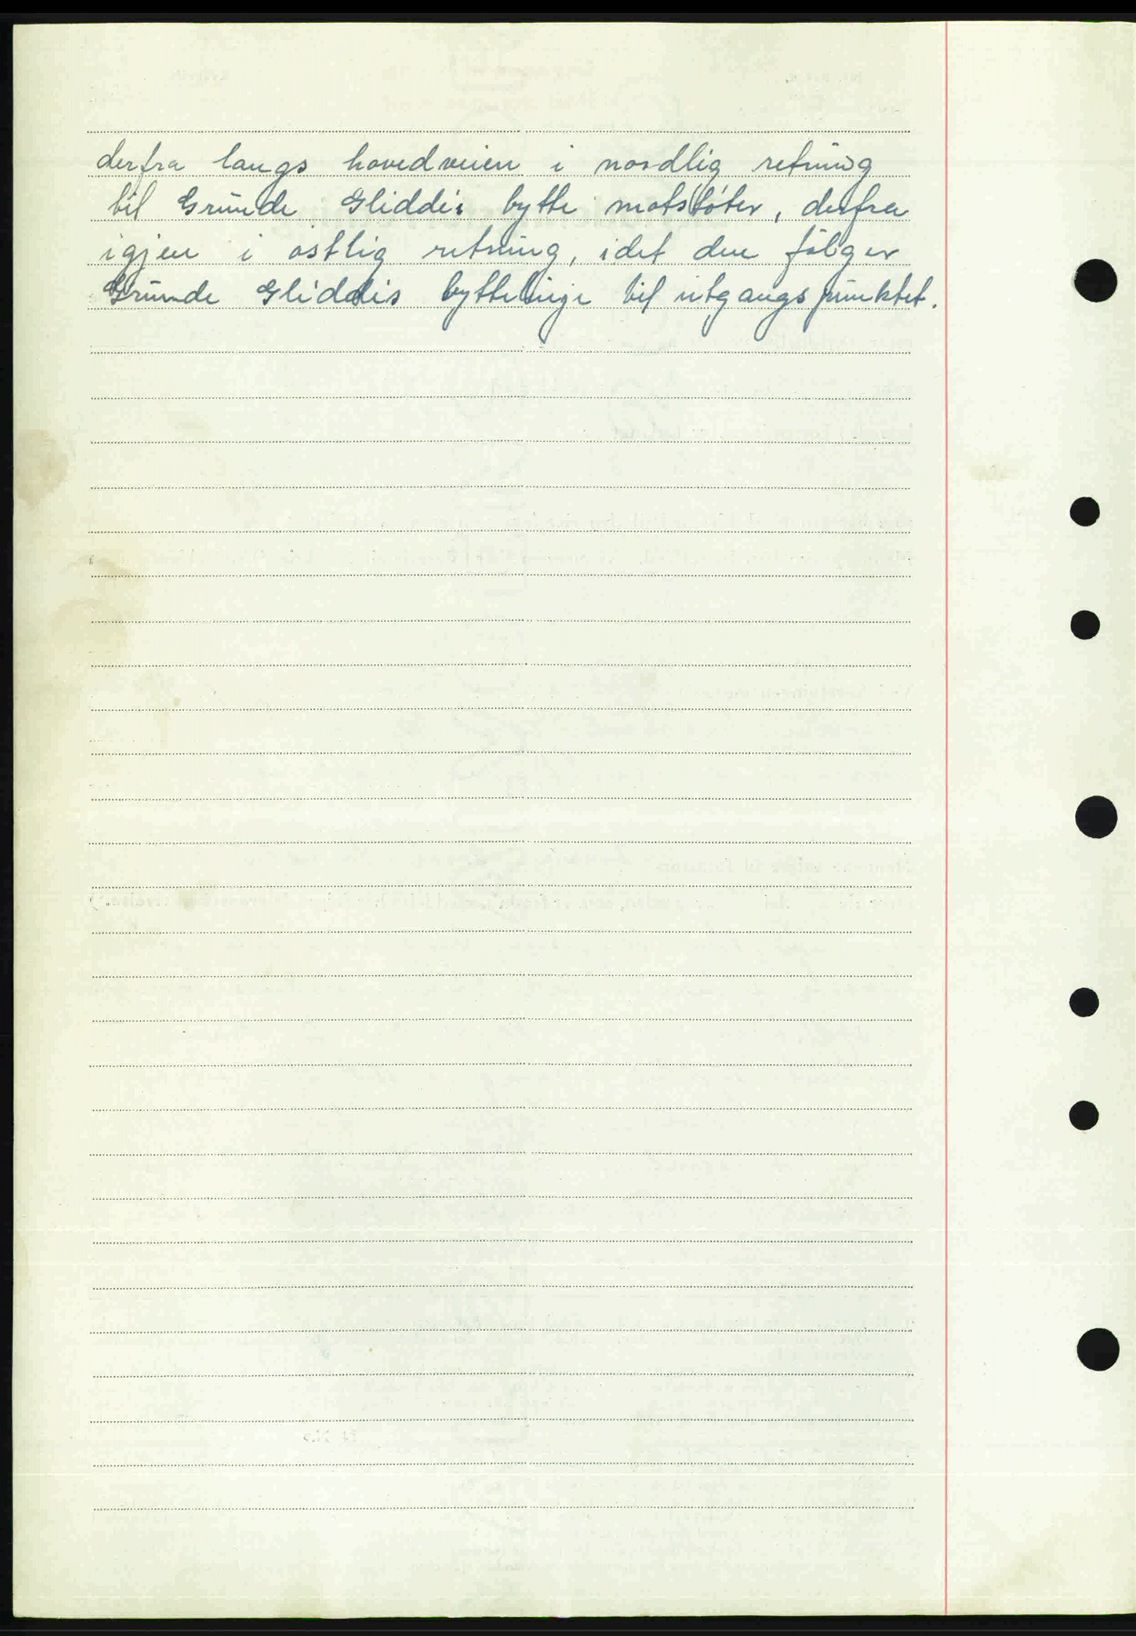 derfra langs hovedveien i nordlig retning
til Grunde Gliddis bytte motstøter, derfra
igjen i østlig retning, idet den følger
Grunde Gliddis byttelinje til utgangspunktet.